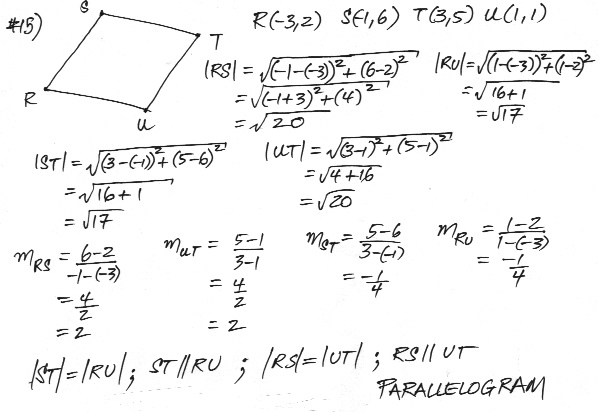 #15)
R(-3,2) S(-1,6) T(3,5) U(1,1)
S
T
R
U
|RS| = √((-1-(-3))² + (6-2)²
= √(-1+3)² + (4)²
= √20
|RU| = √(1-(-3))² + (1-2)²
= √16+1
= √17
|ST| = √(3-(-1))² + (5-6)²
= √16+1
= √17
|UT| = √(3-1)² + (5-1)²
= √4+16
= √20
m_RS = 6-2 / -1-(-3)
= 4/2
= 2
m_UT = 5-1 / 3-1
= 4/2
= 2
m_ST = 5-6 / 3-(-1)
= -1/4
m_RU = 1-2 / 1-(-3)
= -1/4
|ST| = |RU| ; ST // RU ; |RS| = |UT| ; RS // UT
PARALLELOGRAM